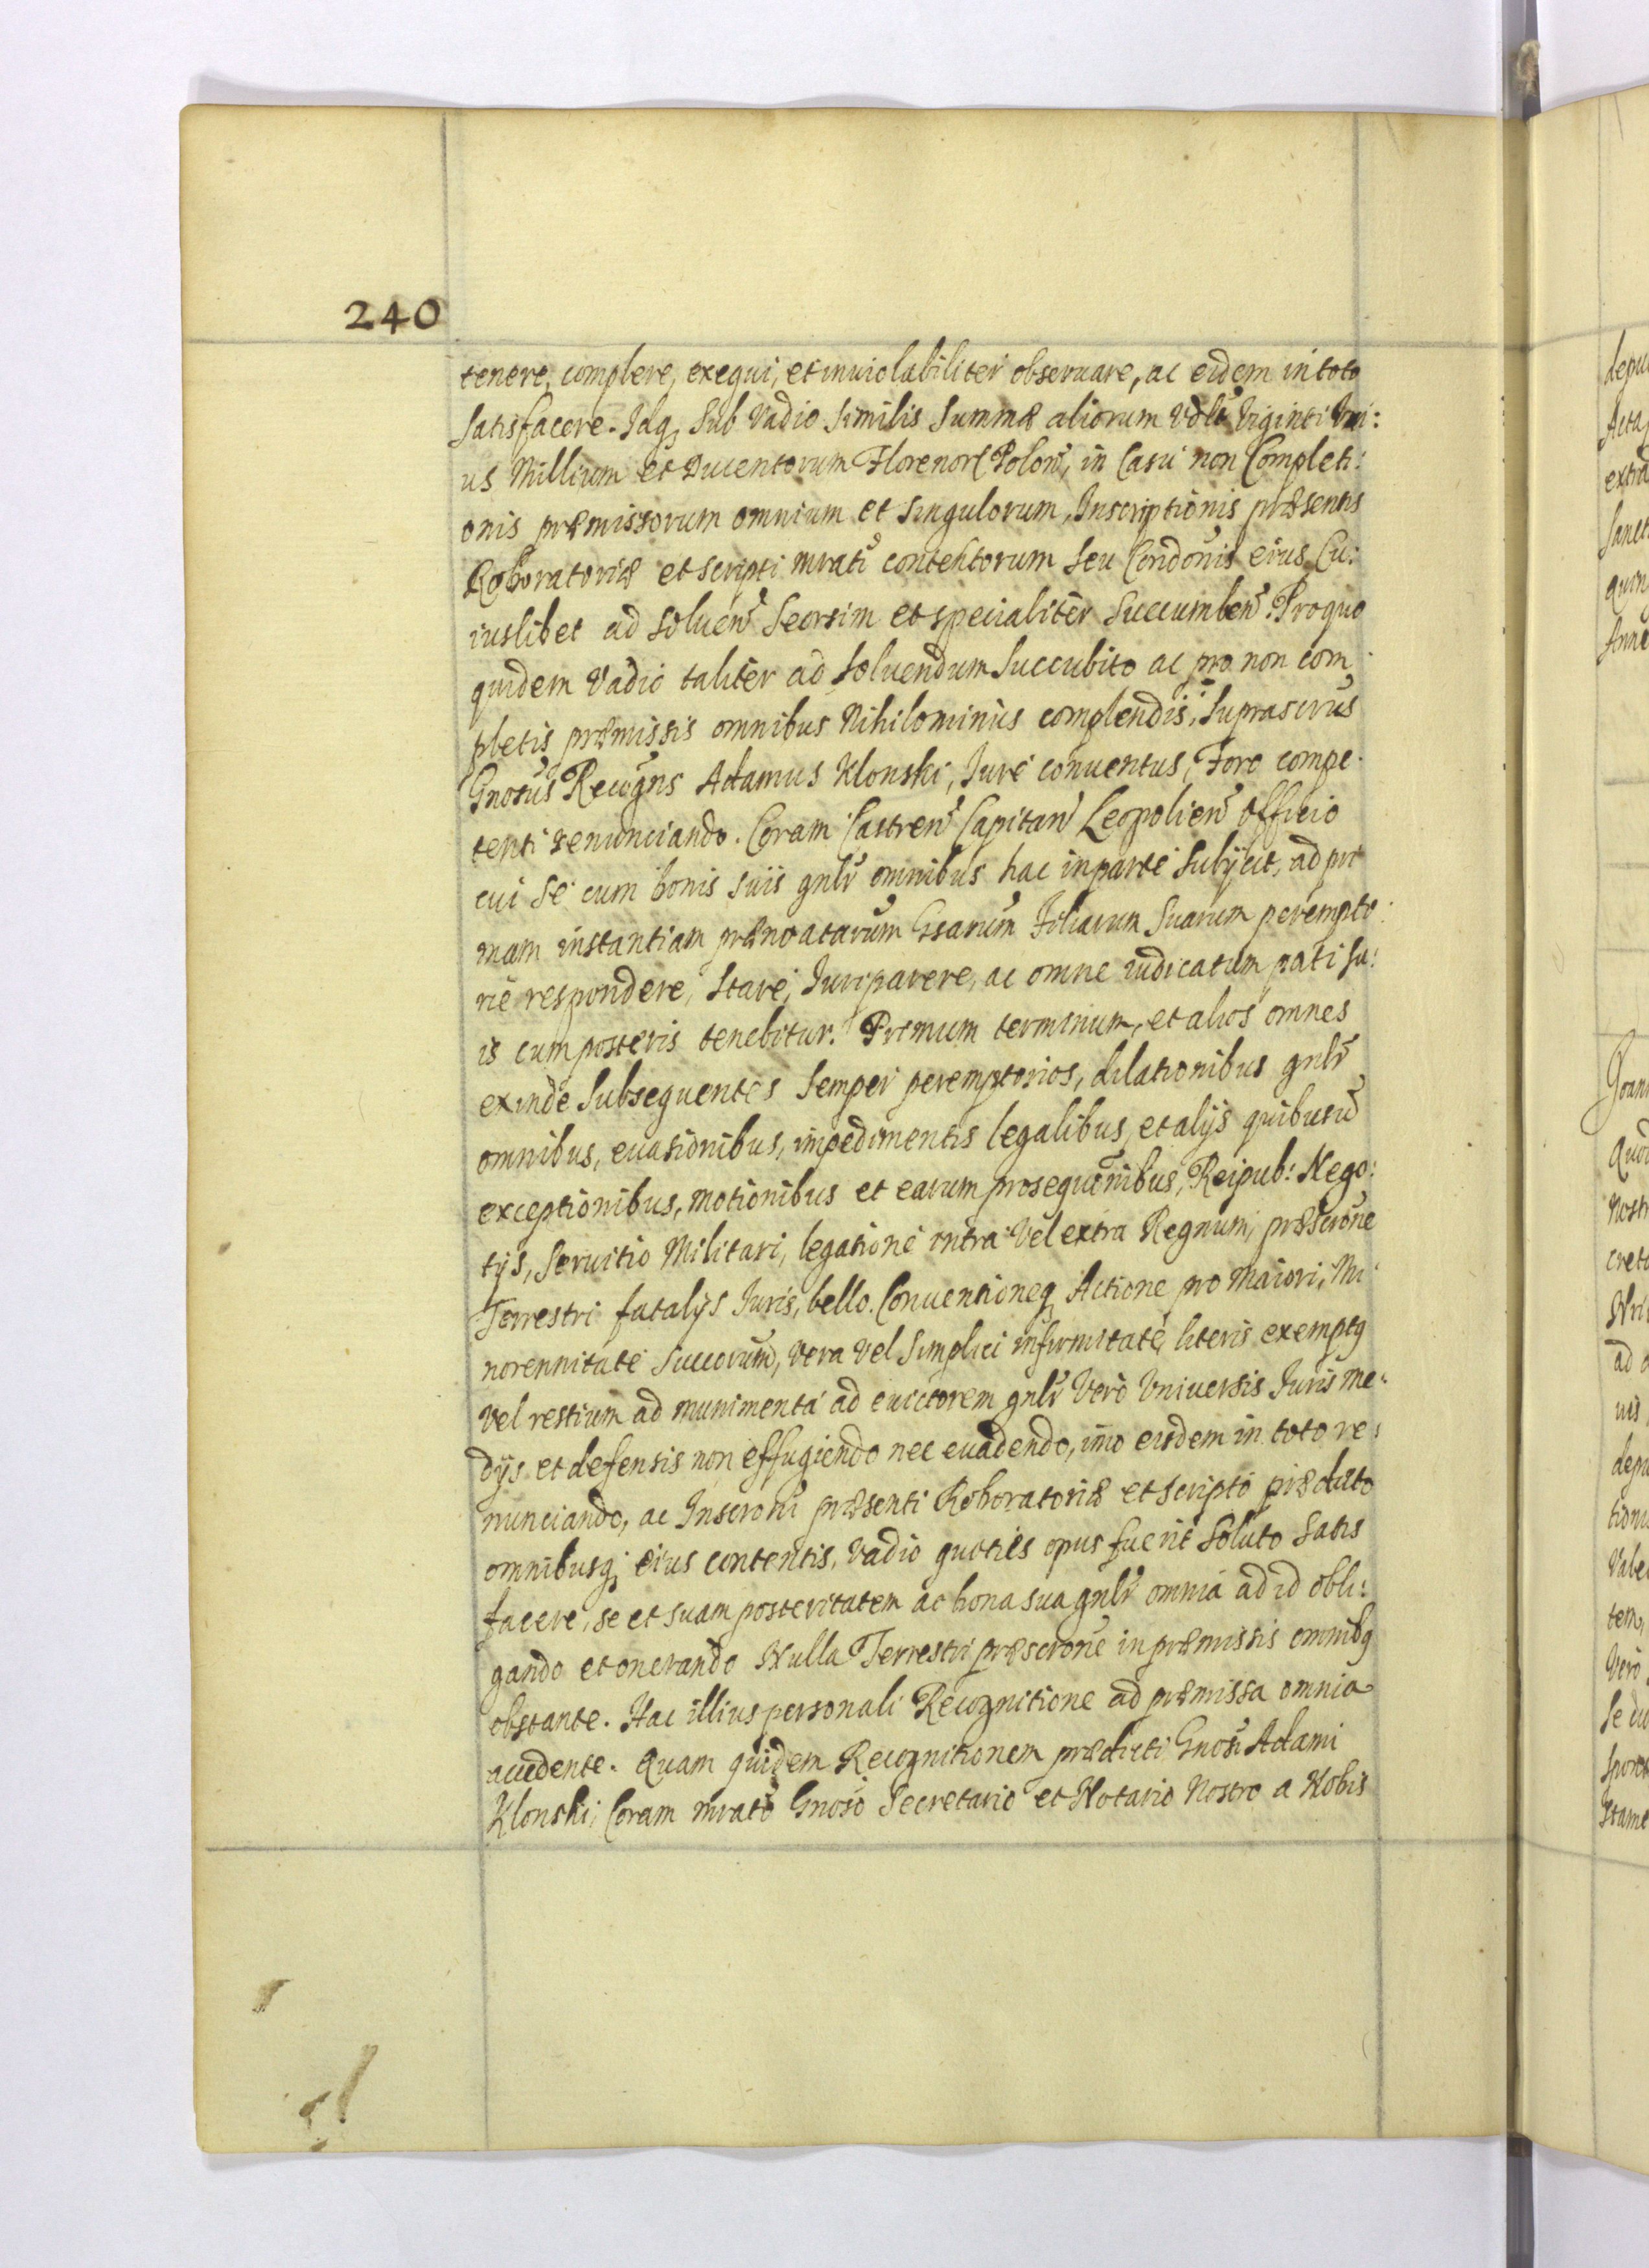 240
tenere, complere, exequi, et inuiolabiliter obseruare, ac eidem in toto
Satisfacere. Idq; Sub Vadio Similis Summæ aliorum Vdlt Viginti Vni:
us Millium et Ducentorum Florenor Polon, in Casu non Completi:
onis præmissorum omnium et Singulorum, Inscriptionis præsentis
Roboratoriæ et scripti mrati contentorum Seu Condonis eius Cu:
iuslibet ad Soluen Seorsim et specialiter Succumben. Pro quo
quidem Vadio taliter ad Soluendum Succubito ac pro non com
pletis præmissis omnibus Nihilominus complendis, Suprascrus
Gnosus Recogns Adamus Klonski, Iure conuentus, Foro compe.
tenti renunciando. Coram Castren Capitan Leopolien Officio
cui Se cum bonis suis gnlr omnibus hac in parte Subijcit, ad pri
mam instantiam prænoatarum Gsarum Filiarum Suarum perempto:
rie respondere, Stare, Iuri parere, ac omne iudicatum pati Su:
is cum posteris tenebitur. Primum terminum, et alios omnes
exinde Subsequentes Semper peremptorios, dilationibus gnlr
omnibus, euasionibus, impedimentis legalibus, et alijs quibusu
exceptionibus, motionibus et earum prosequonibus, Reipub: Nego:
tijs, Seruitio Militari, legatione intra Vel extra Regnum, præscrone
Terrestri fatalijs Iuris, bello. Conuentioneq Actione pro Maiori, Mi
norennitate Succorum, Vera Vel Simplici infirmitate, literis exemptq
Vel restium ad munimenta ad euictorem gnlr Vero Vniuersis Iuris me:
dijs et defensis non effugiendo nec euadendo, imo eisdem in toto re:
nunciando, ac Inscroni præsenti Roboratoriæ et Scripto prædicto
omnibusq; eius contentis, Vadio quoties opus fuerit Soluto Satis
facere, se et suam posteritatem ac bona sua gnlr omnia ad id obli:
gando et onerando Nulla Terrestri præscrone in præmissis omnibq
obstante. Hac illius personali Recognitione ad præmissa omnia
accedente. Quam quidem Recognitionem prædicti Gnosi Adami
Klonski, Coram mrato Gnoso Secretario et Notario Nostro a Nobis